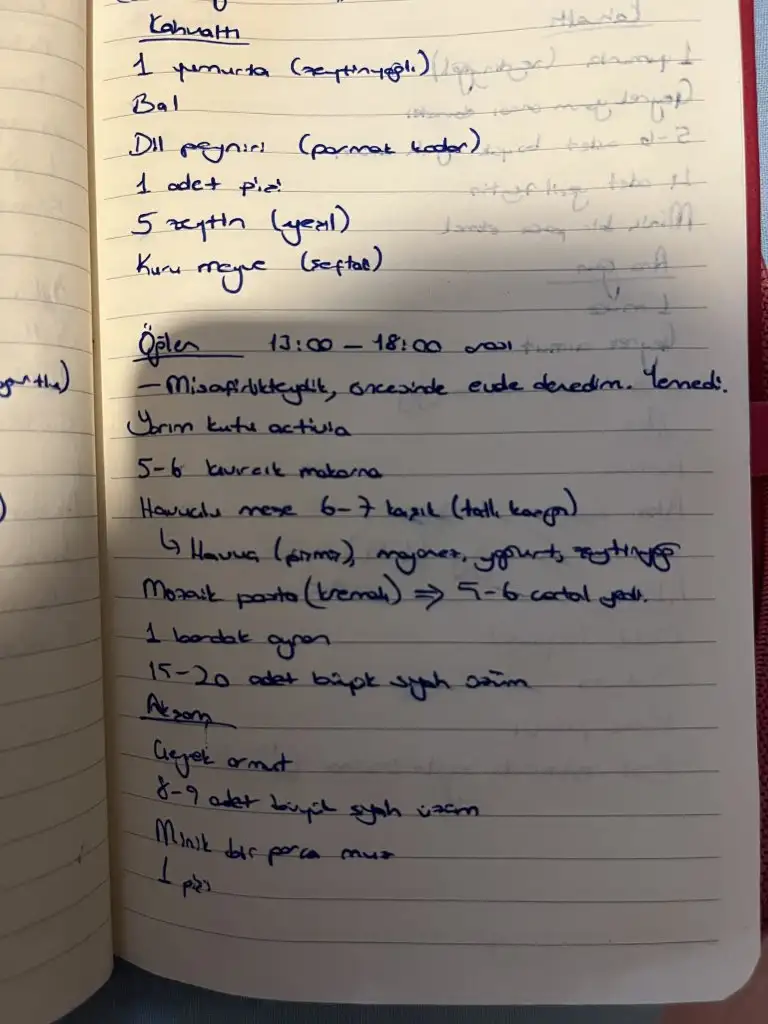 Kahvaltı
1 yumurta (zeytinyağlı)
Bal
Dil peyniri (parmak kadar)
1 adet pizi
5 zeytin (yeşil)
Kuru meyve (şeftali)
Öğlen 13:00 – 18:00 arası
– Misafirlikteydik, öncesinde evde denedim. Yemedi.
Yarım kutu activia
5-6 kıvırcık makarna
Havuçlu meze 6-7 kaşık (tatlı kaşığı)
↳ Havuç (pişmiş), mayonez, yoğurt, zeytinyağı
Mozaik pasta (kremalı) ⇒ 5-6 çatal yedi.
1 bardak ayran
15-20 adet büyük siyah üzüm
Akşam
Çeyrek armut
8-9 adet büyük siyah üzüm
Minik bir parça muz
1 pizi